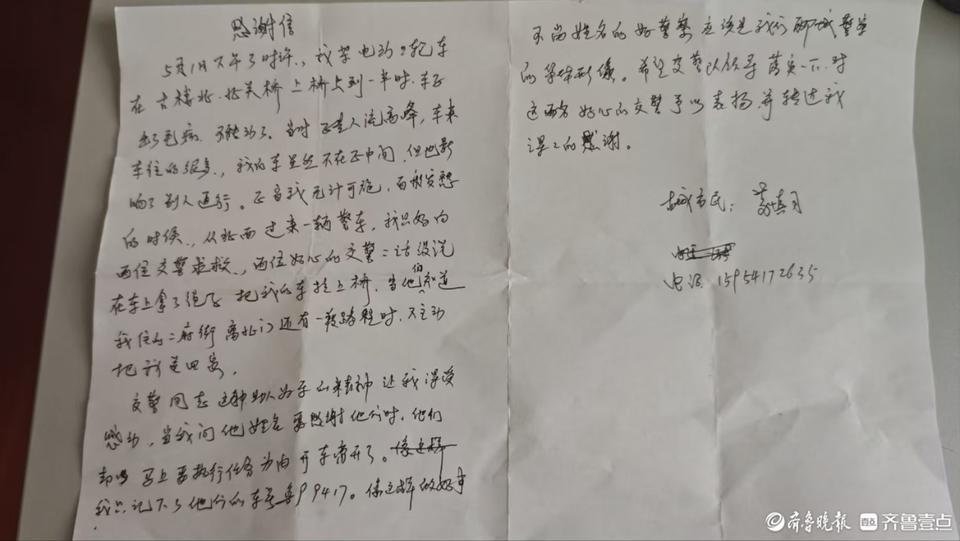 感谢信
5月1日下午3时许、我驾电动三轮车
在古楼北、北关桥上桥上到一半时、车子
出了毛病、不能动了。当时正是人流高峰,车来
车往的很多、我的车虽然不在正中间,但也影
响了别人通行。正当我无计可施,百般发愁
的时候、从北面过来一辆警车,我只好向
两位交警求救、两位好心的交警二话没说
在车上拿了绳子把我的车拉上桥,当他们知道
我住的二府街离北门还有一段路程时,又主动
把我送回家。
交警同志这种助人为乐的精神让我深受
感动,当我问他姓名要感谢他们时,他们
却以马上要执行任务为由开车离开了。像这样
我只记下了他们的车号鲁P9417。像这样做好事
不留姓名的好警察应该是我们聊城警察
的荣球形像。希望交警队领导落实一下、对
这两名好心的交警予以表扬,并转达我
深深的感谢。
古城市民:
电话 15954172635
齐鲁晚报 壹点 齐鲁壹点